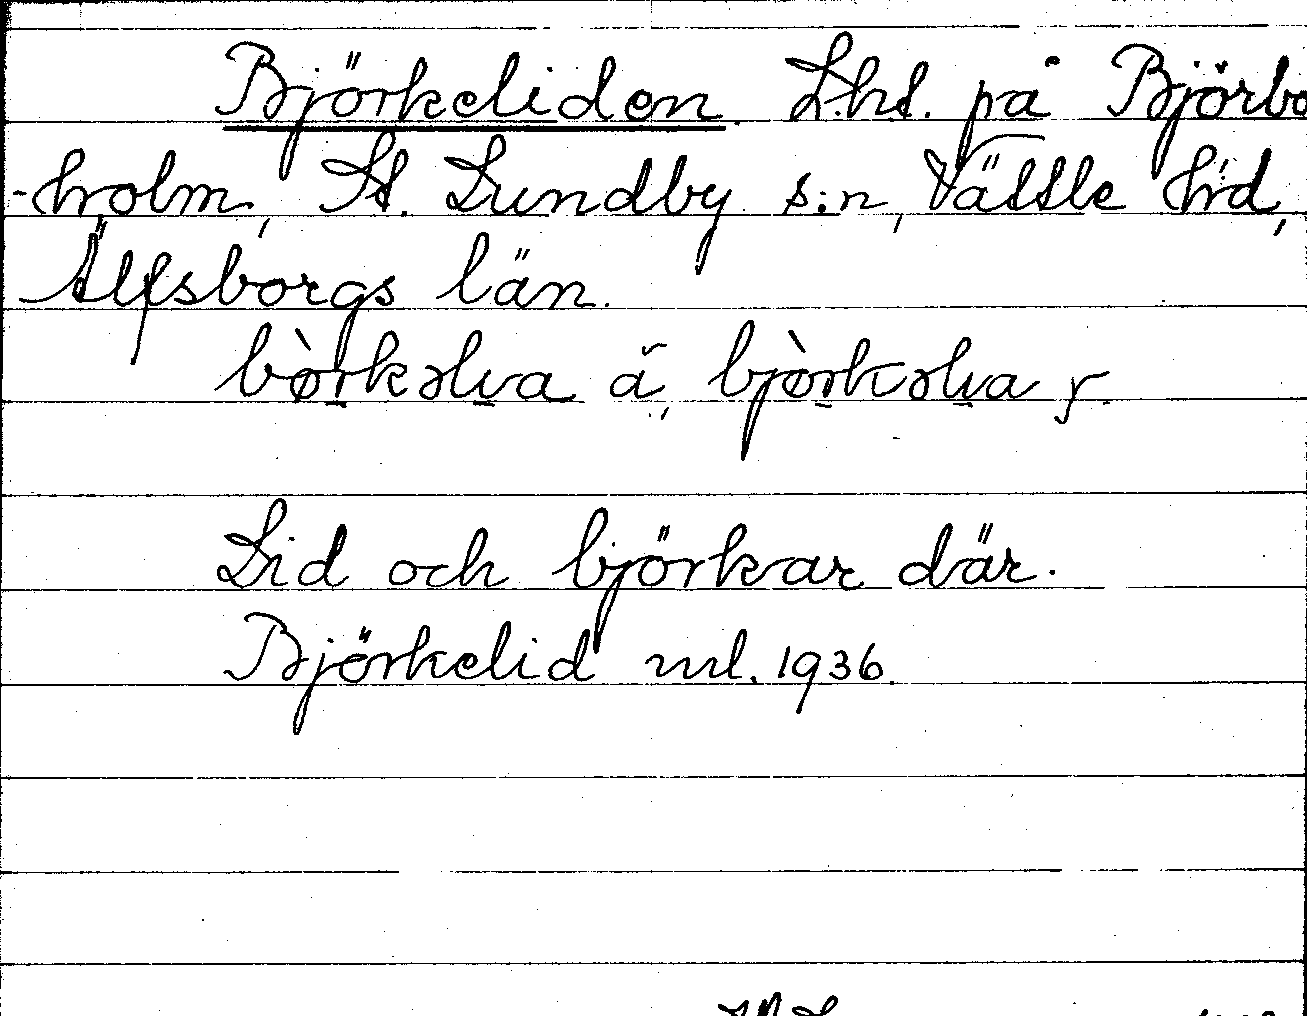 Björkeliden. Lht. på Björbo
-holm, St. Lundby s:n, Vättle hd,
Älfsborgs län.
bòrkəlva ä, bjòrkəlva y.
Lid och björkar där.
Björkelid ml. 1936.